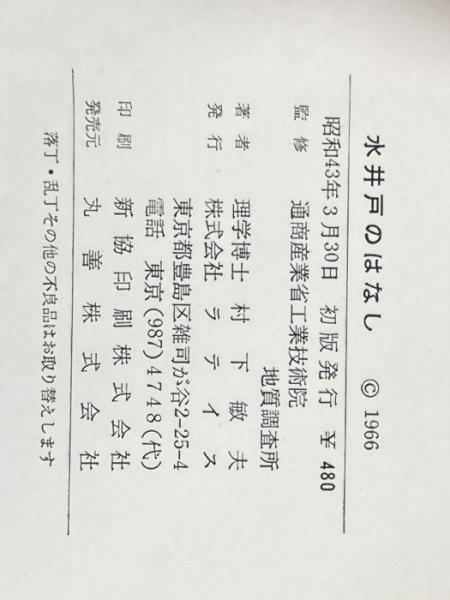 水井戸のはなし　© 1966
昭和43年3月30日　初版発行　¥ 480
監修　通商産業省工業技術院
地質調査所
著者　理学博士　村下敏夫
発行　株式会社ラテイス
東京都豊島区雑司が谷2-25-4
電話　東京(987)4748(代)
印刷　新協印刷株式会社
発売元　丸善株式会社
落丁・乱丁その他の不良品はお取り替えします